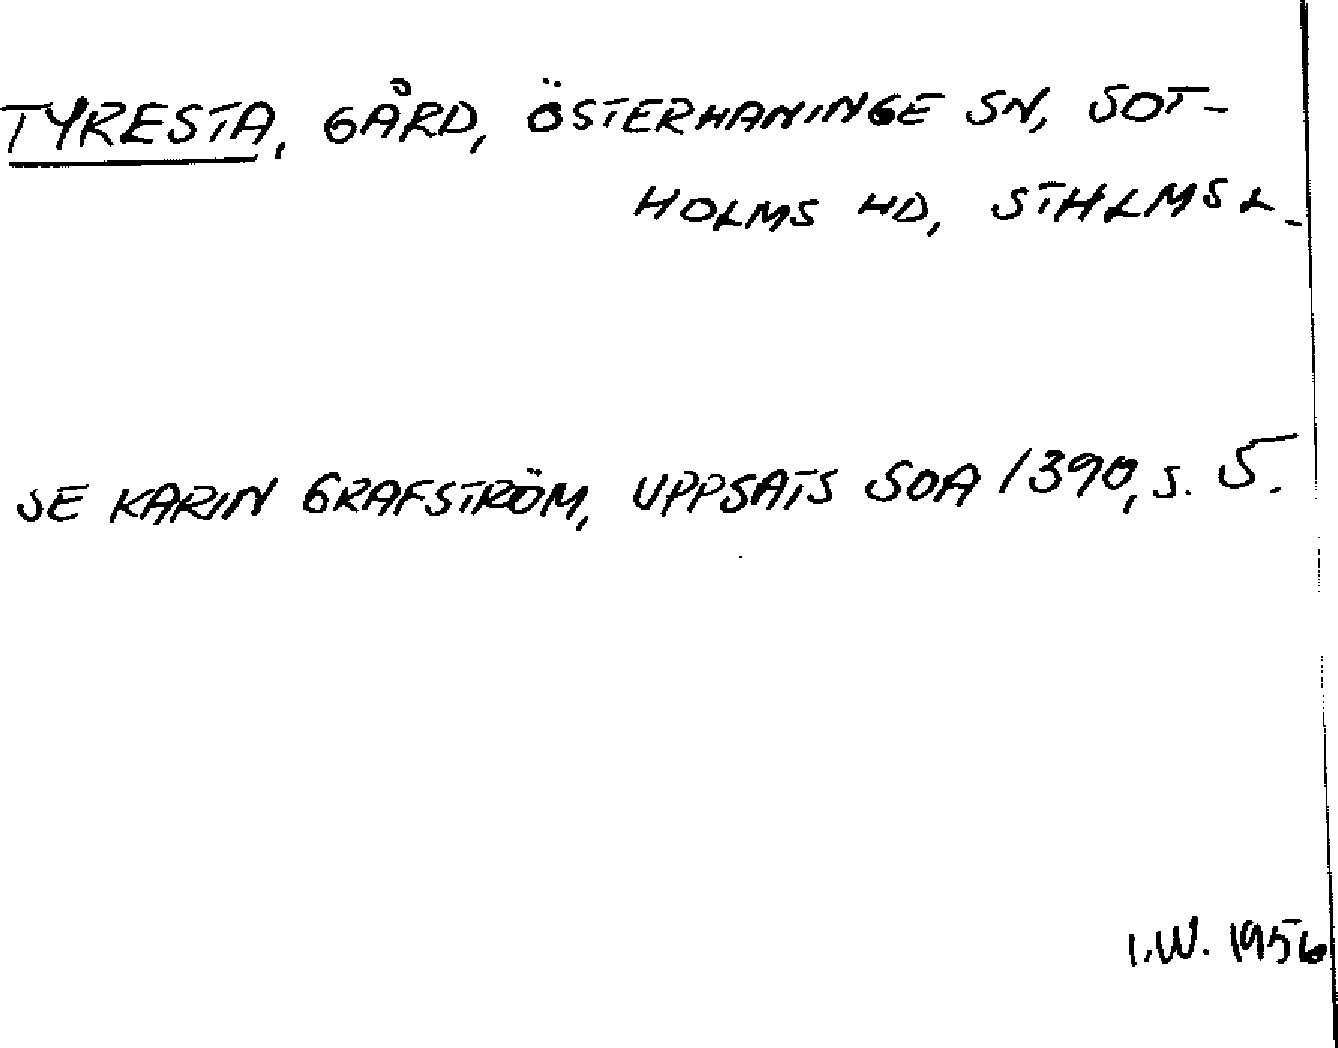 TYRESTA, GÅRD, ÖSTERHANINGE SN, SOT-
HOLMS HD, STHLMS L.
SE KARIN GRAFSTRÖM, UPPSATS SOA 1390, S. 5.
I.W. 1956